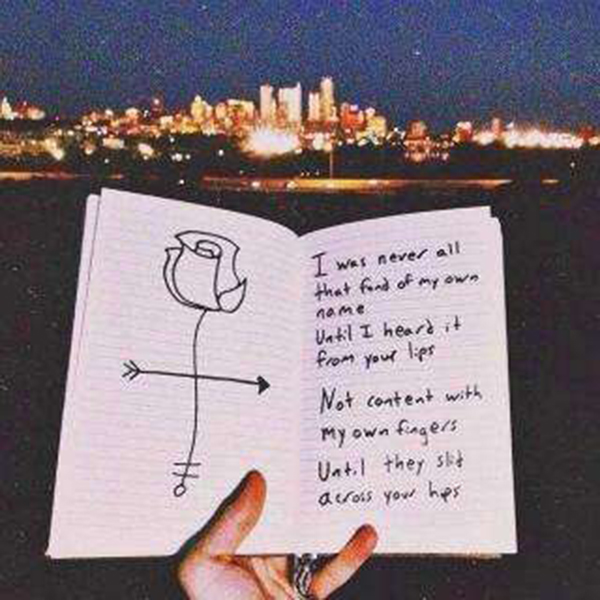 I was never all
that fond of my own
name
Until I heard it
from your lips
Not content with
my own fingers
Until they slid
across your hips